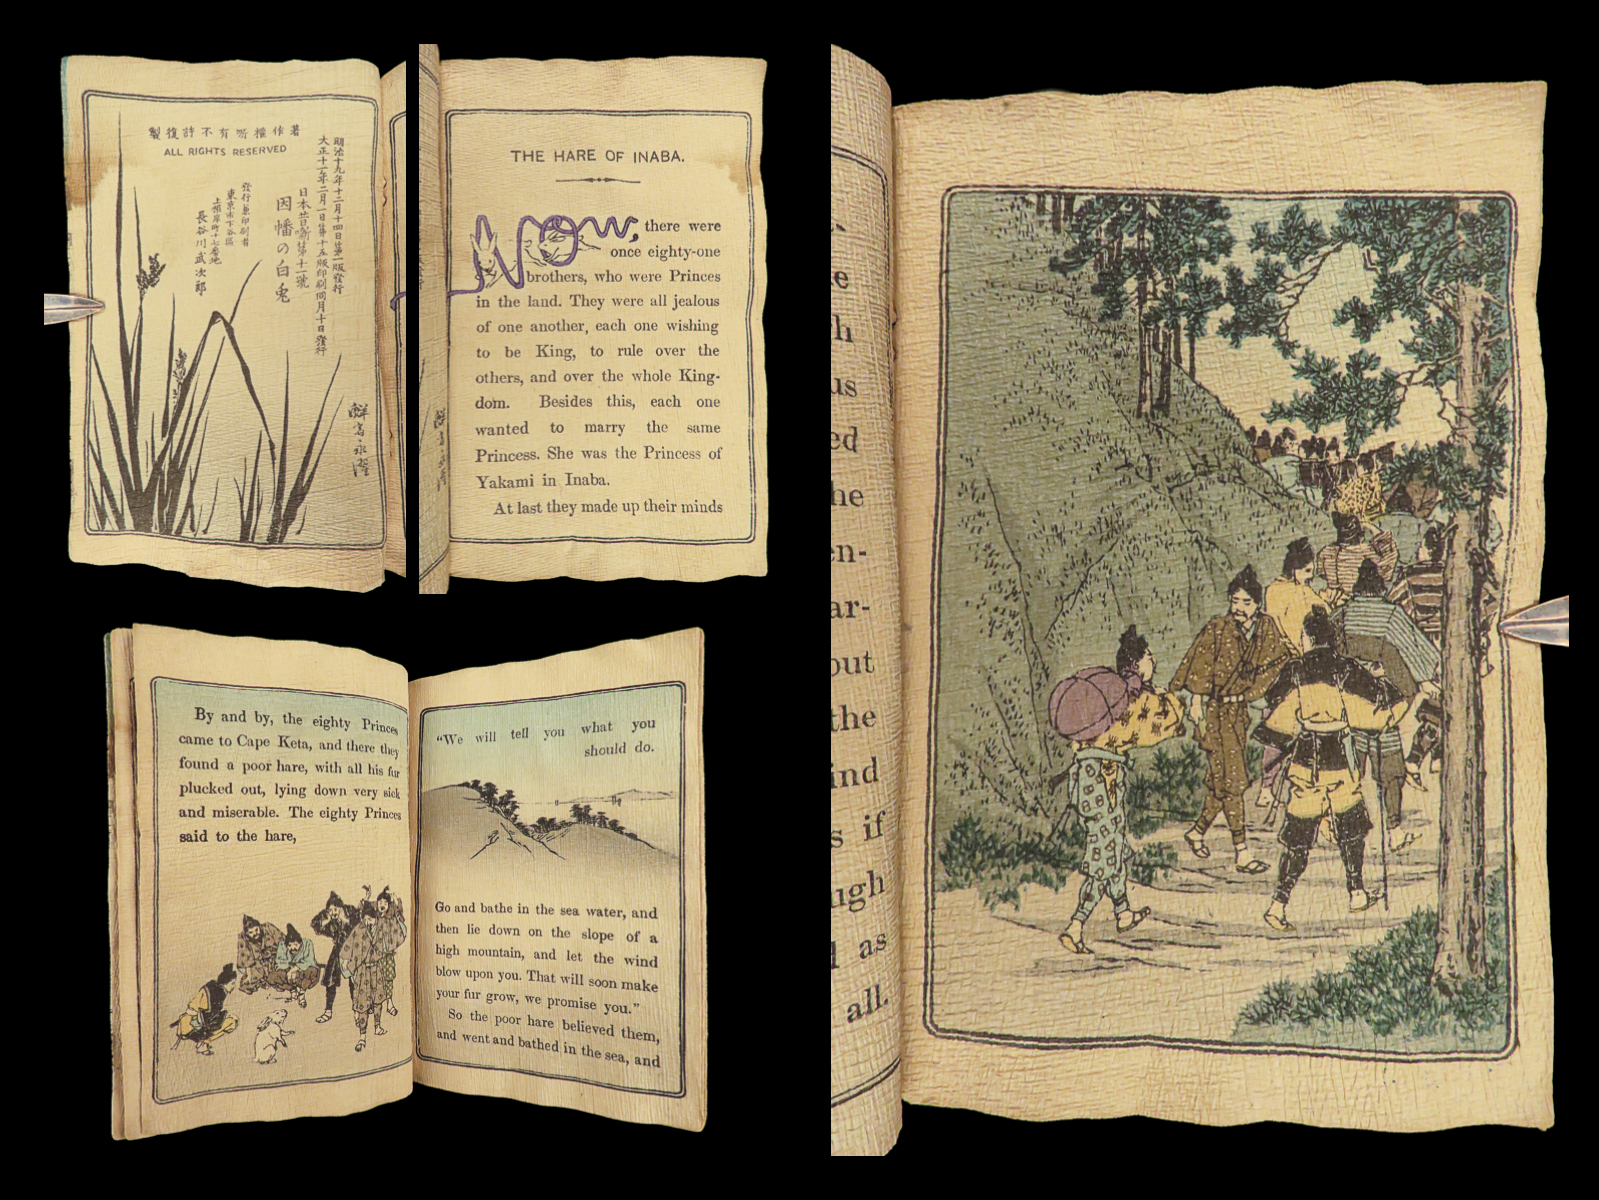 著作權所有不許復製
ALL RIGHTS RESERVED
明治十九年十二月十四日第一版發行
大正十一年二月一日第十五版印刷同月十日發行
日本昔噺第十一號
因幡の白兎
發行兼印刷者
東京市下谷區
上根岸町十七番地
長谷川武次郎
鮮斎永濯
THE HARE OF INABA.
Now, there were
once eighty-one
brothers, who were Princes
in the land. They were all jealous
of one another, each one wishing
to be King, to rule over the
others, and over the whole King-
dom. Besides this, each one
wanted to marry the same
Princess. She was the Princess of
Yakami in Inaba.
At last they made up their minds
By and by, the eighty Princes
came to Cape Keta, and there they
found a poor hare, with all his fur
plucked out, lying down very sick
and miserable. The eighty Princes
said to the hare,
“We will tell you what you
should do.
Go and bathe in the sea water, and
then lie down on the slope of a
high mountain, and let the wind
blow upon you. That will soon make
your fur grow, we promise you.”
So the poor hare believed them,
and went and bathed in the sea, and
us
ed
he
en-
ar-
out
the
ind
s if
ugh
as
all.